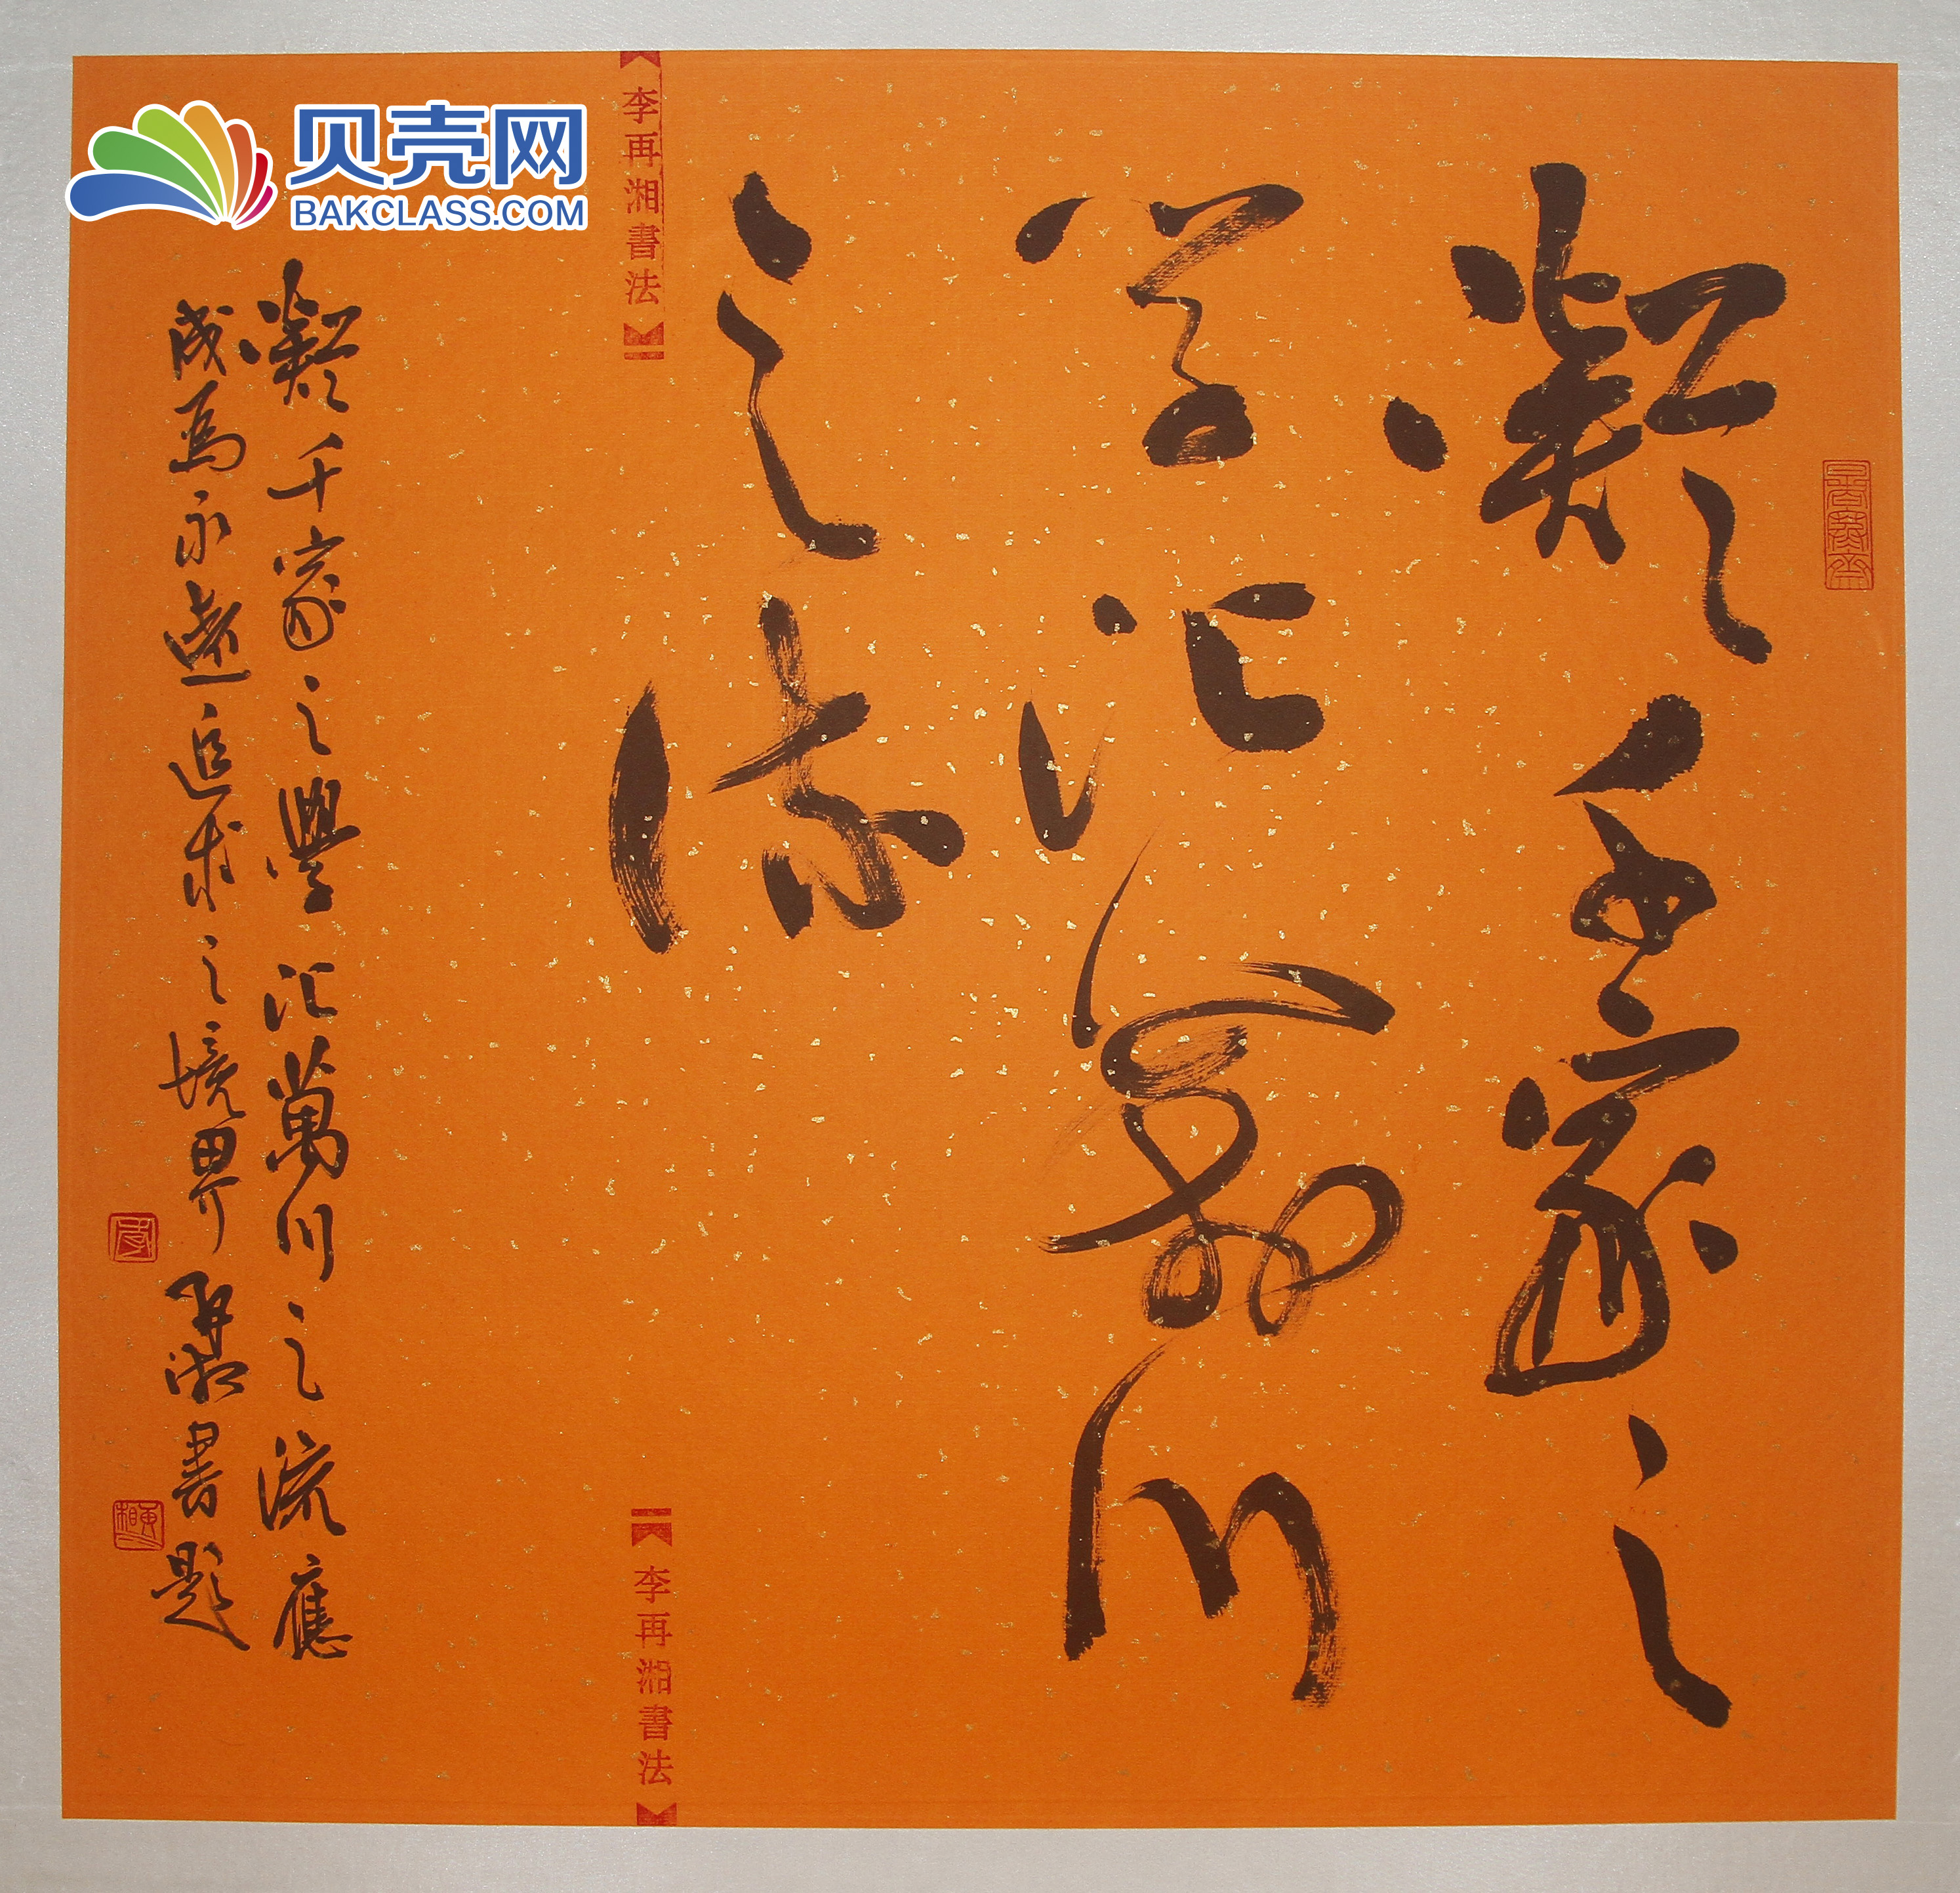 凝千家之
学汇万川
之流
凝千家之學汇萬川之流應
成爲永遠追求之境界 再湘書題
李再湘書法
李再湘書法
贝壳网
BAKCLASS.COM